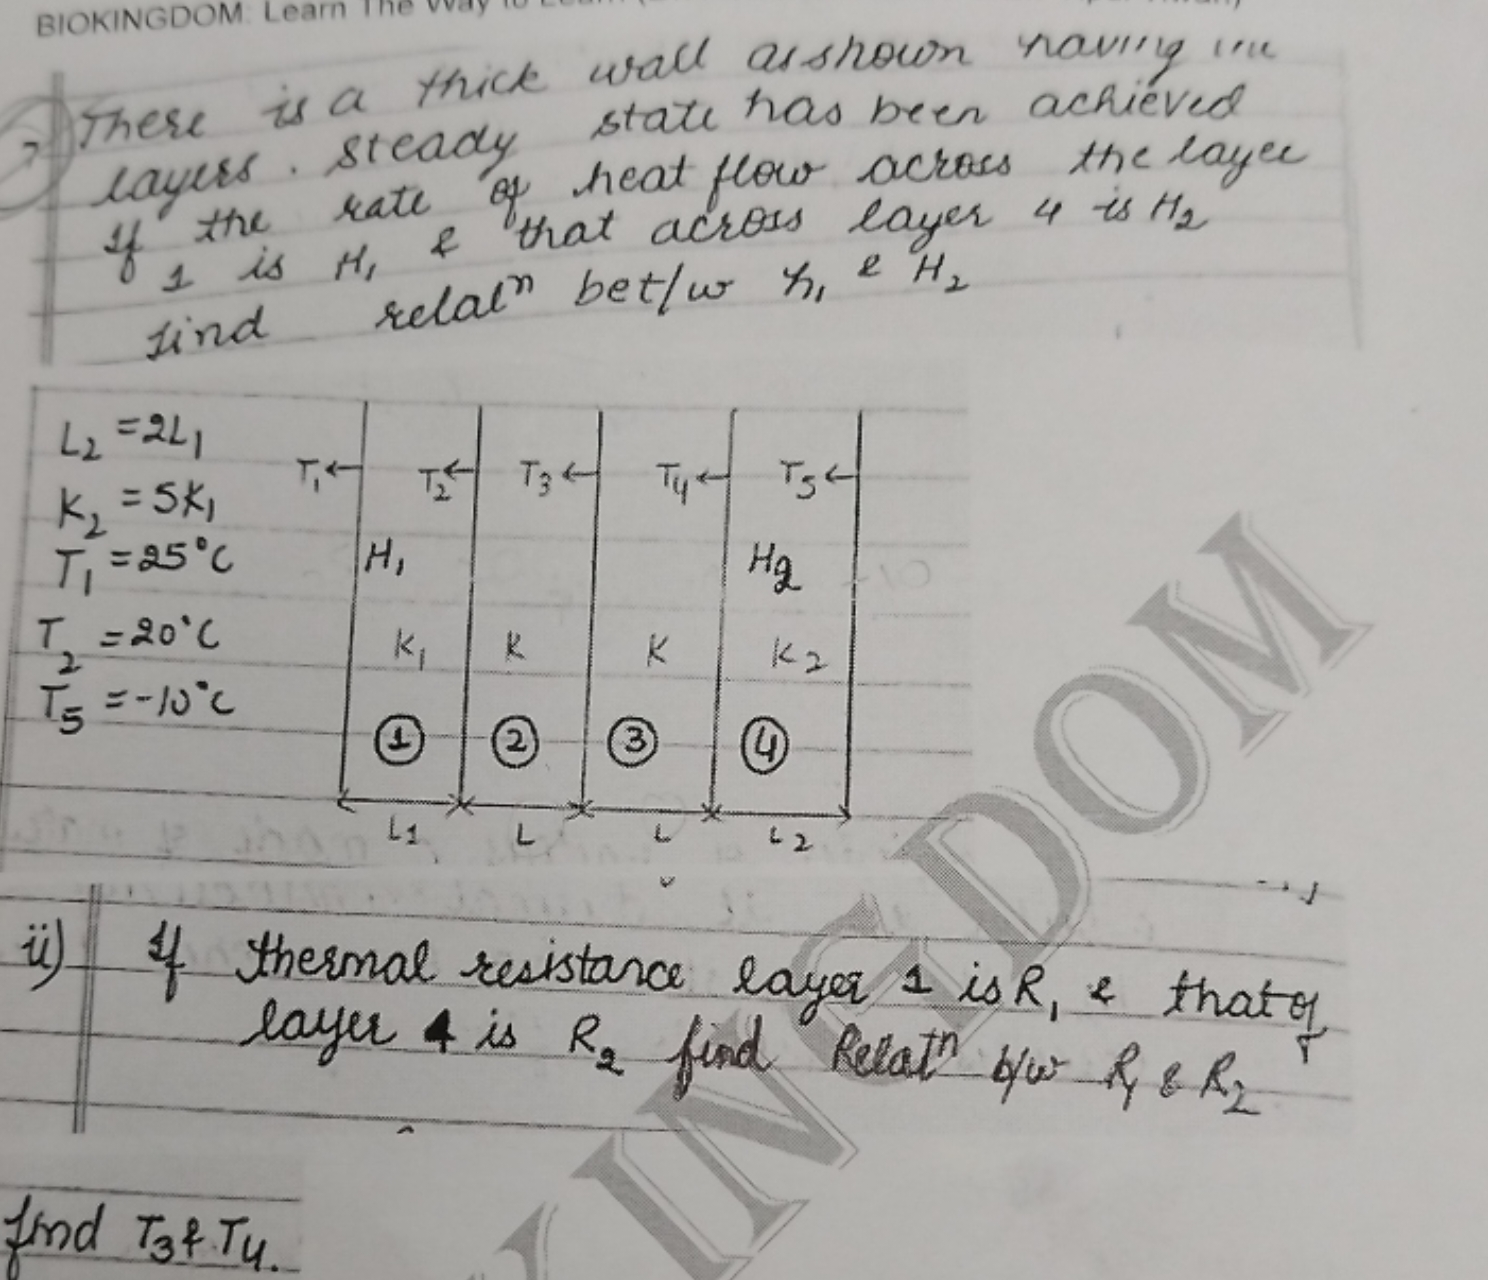 BIOKINGDOM: Learn The Way to Learn
There is a thick wall as shown having
layers. steady state has been achieved
If the rate of heat flow across the layer
1 is H₁ & that across layer 4 is H₂
find relatⁿ bet/w H₁ & H₂
L₂ = 2L₁
K₂ = 5K₁
T₁ = 25°C
T₂ = 20°C
T₅ = -10°C
T₁← T₂← T₃← T₄← T₅←
H₁ H₂
K₁ K K K₂
① ② ③ ④
L1 L L L2
ii) If thermal resistance layer 1 is R₁ & that of
layer 4 is R₂ find Relatⁿ b/w R₁ & R₂
find T₃ & T₄.
KINGDOM